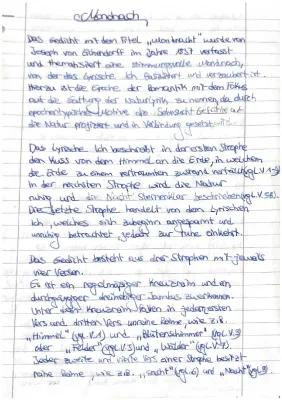 "Mondnach
Das Gedicht mit dem Titel „Mondnacht" wurde von
Joseph von Eichendorff im Jahre 1837 verfasst
und thematisiert eine stimmungsvolle Mondnach,
von der das Lyrische Ich fasziniert und verzaubert ist.
Hierzu ist die Epoche der Romantik mit dem Fokus
auf die Gattung der Naturlyrik zu nennen, da durch
epochentypische Motive die Sehnsucht Gefühle auf
die Natur projiziert und in Verbindung gesetzt wird.
Das Lyrische Ich beschreibt in der ersten Strophe
den Kuss von dem Himmel an die Erde, in welchem
die Erde zu einem vertraumten zustand verfällt (vgl. V.1-3)
In der nächsten Strophe wird die Natur
ruhig und die Nacht Sternenklar beschrieben (vgl. V.58).
Die letzte Strophe handelt von dem Lyrischen
Ich, welches sich zubeginn angespannt und
unruhig betrachtet, jedoch zur ruhe einkehrt.
Das Gedicht besteht aus drei Strophen mit jeweils
vier Versen.
Es ist ein regelmäßiger Kreuzreim und ein
durchgängiger dreihebiger Jambus zuerkennen.
Unter den Kreuzreim fallen in jedem ersten
Vers und dritten Vers unreine Reime, wie z.B.
„Himmel" (vgl. V.1) und „Blütenschimmer" (vgl. V.3)
oder „Felder" (vgl. V.5) und „Wälder" (vgl. V.7).
Jeder zweite und vierte Vers einer Strophe besitzt
reine Reime, wie z.B. „sacht" (vgl. 6) und „Nacht" (vgl. 8).